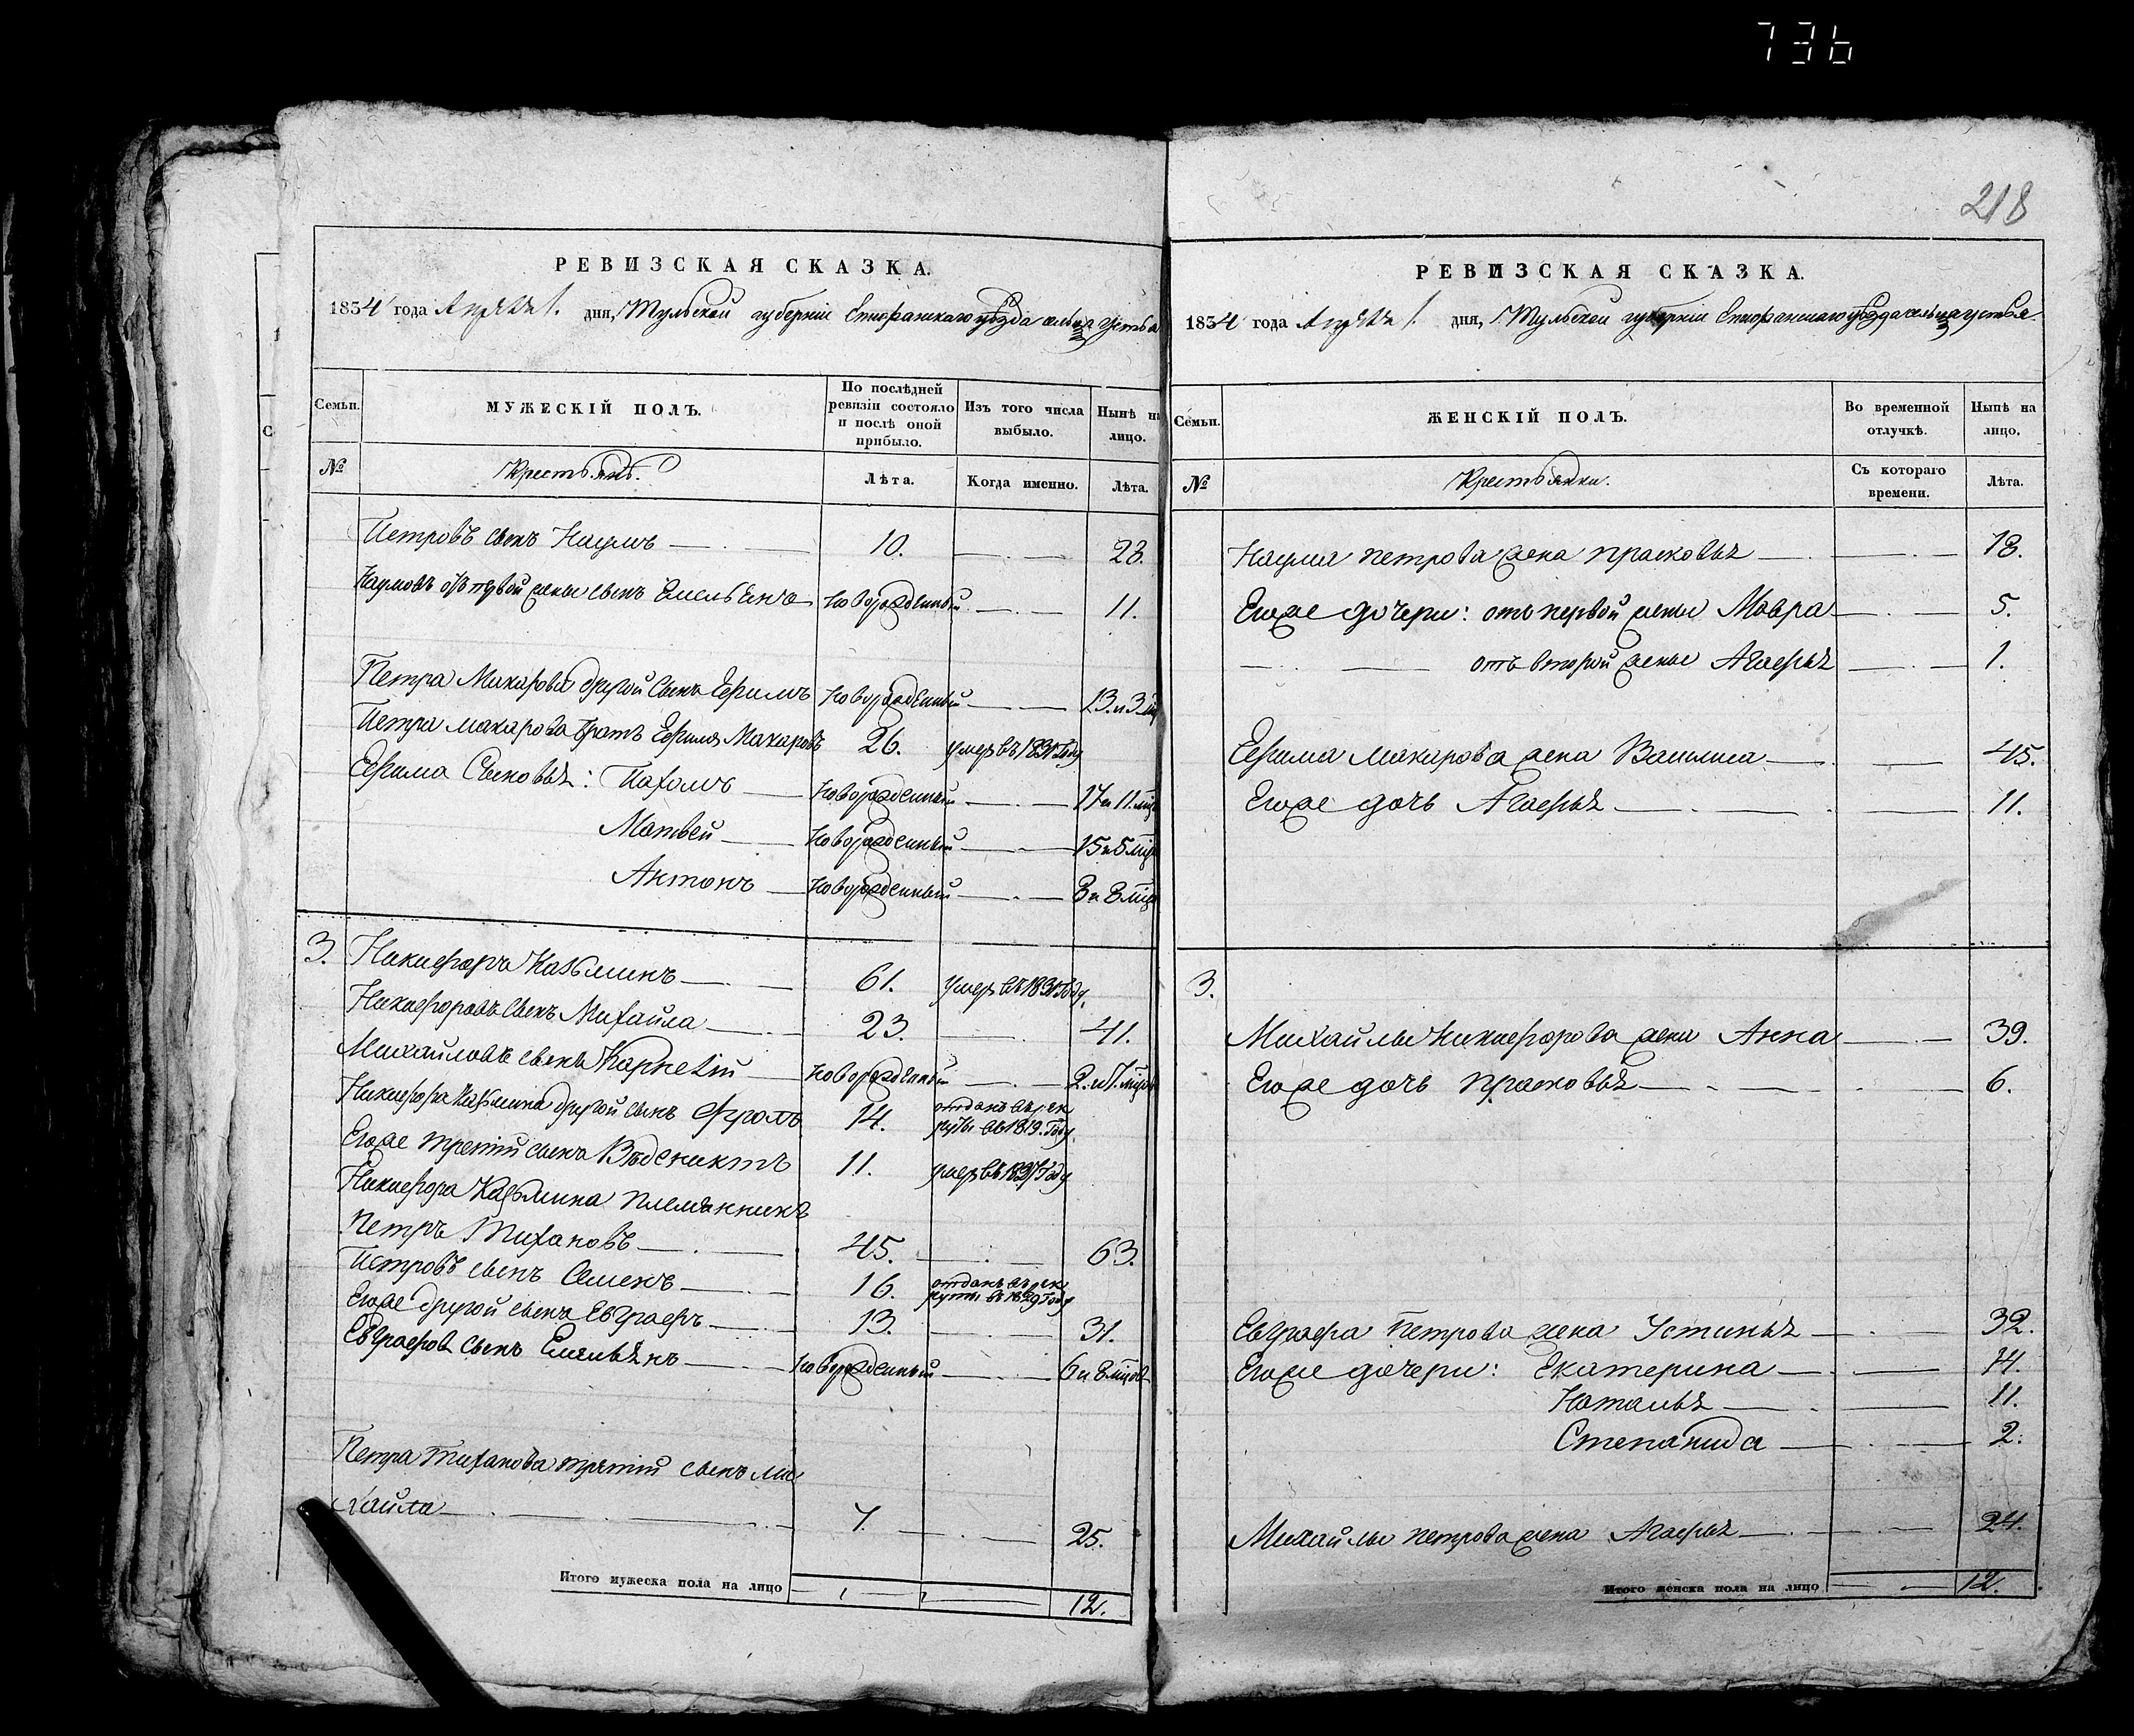 736
218
РЕВИЗСКАЯ СКАЗКА.
1834 года Апрѣля 1. дня, Тульской губерніи Епифанскаго уѣзда сельца
Семьи.
МУЖЕСКІЙ ПОЛЪ.
По послѣдней ревизіи состояло и послѣ оной прибыло.
Изъ того числа выбыло.
Нынѣ на лицо.
№
Крестьянъ.
Лѣта.
Когда именно.
Лѣта.
Петровъ сынъ Наумъ 10. 28.
Наумовъ отъ первой жены сынъ Емельянъ новорожденный 11.
Петра Макарова другой сынъ Ефимъ новорожденный 13. и 3
Петра Макарова братъ Ефимъ Макаровъ 26. умеръ въ году
Ефима сыновья: Пахомъ новорожденный 17 и 11 мѣ
Матвей новорожденный 15 и 5 мѣ
Антонъ новорожденный 8 и 8 мѣ
3. Никифоръ Казьминъ 61. умеръ въ году
Никифоровъ сынъ Михайла 23. 41.
Михайловъ сынъ Карней новорожденный 2. и
Никифора Казьмина другой сынъ Фролъ 14. отданъ въ рек
руты въ 1819. году
Его же третій сынъ Ведениктъ 11. умеръ въ году
Никифора Казьмина племянникъ
Петръ Тихановъ 45. 63.
Петровъ сынъ Семенъ 16. отданъ въ рек
руты въ 1829 году
Его же другой сынъ Евграфъ 13. 31.
Евграфовъ сынъ Емельянъ новорожденный 6 и 8 мѣ
Петра Тиханова третій сынъ Ми
хайла 7. 25.
Итого мужеска пола на лицо 12.
РЕВИЗСКАЯ СКАЗКА.
1834 года Апрѣля 1. дня, Тульской губерніи Епифанскаго уѣзда сельца
Семьи.
ЖЕНСКІЙ ПОЛЪ.
Во временной отлучкѣ.
Нынѣ на лицо.
№
Крестьянки.
Съ котораго времени.
Лѣта.
Наума Петрова жена Прасковья 18.
Его же дочери: отъ первой жены Мавра 5.
отъ второй жены Агафья 1.
Ефима Макарова жена Василиса 45.
Его же дочь Агафья 11.
3.
Михайлы Никифорова жена Анна 39.
Его же дочь Прасковья 6.
Евграфа Петрова жена Устинья 32.
Его же дочери: Екатерина 14.
Наталья 11.
Степанида 2.
Михайлы Петрова жена Агафья 24.
Итого женска пола на лицо 12.